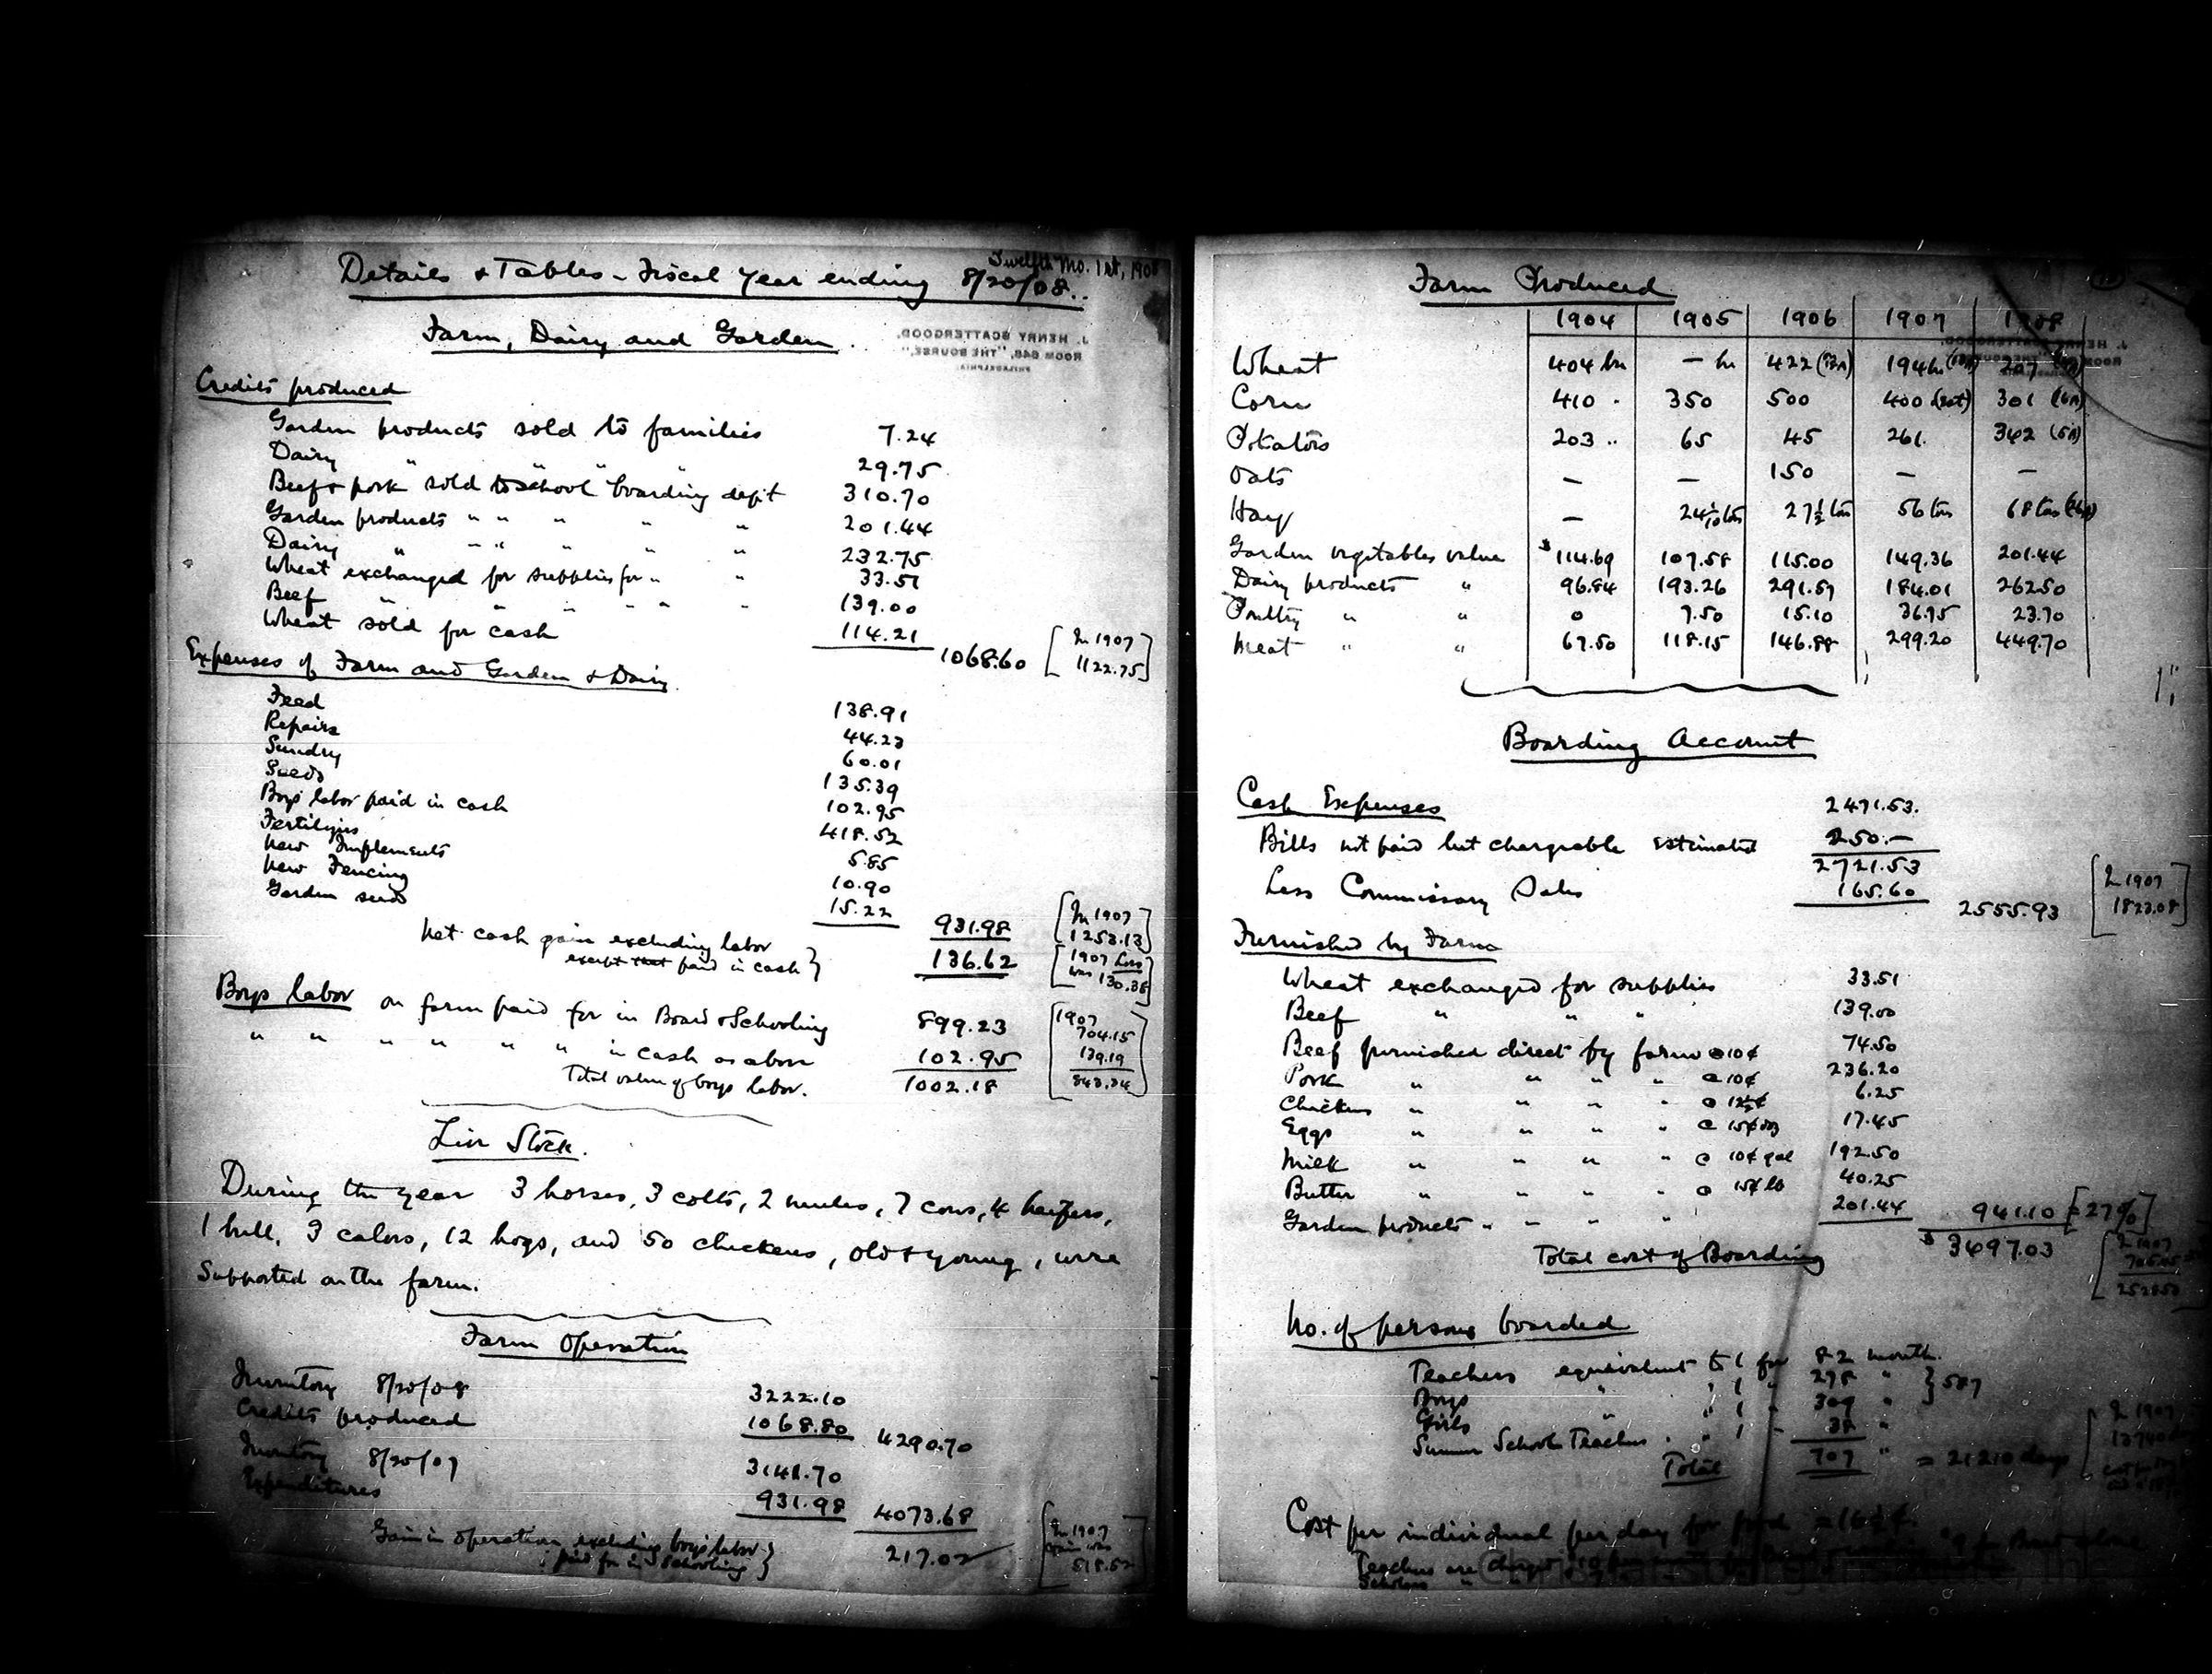 Twelfth Mo. 1st, 1908
Details & Tables - Fiscal Year ending 8/20/08.
Farm, Dairy and Garden.
J. HENRY SCATTERGOOD,
ROOM 648, "THE BOURSE,"
PHILADELPHIA.
Credits produced
Garden products sold to families 7.24
Dairy " " " " 29.75
Beef & pork sold to school boarding dep't 310.70
Garden products " " " " " 201.44
Dairy " " " " " " 232.75
Wheat exchanged for supplies for " " 33.51
Beef " " " " " " 139.00
Wheat sold for cash 114.21
1068.60 [In 1907 1122.75]
Expenses of Farm and Garden & Dairy
Feed 138.91
Repairs 44.23
Sundry 60.01
Seeds 135.39
Boys' labor paid in cash 102.95
Fertilizers 418.52
New Implements 5.85
New Fencing 10.90
Garden seeds 15.22
931.98 [In 1907 1253.13]
Net cash gain excluding labor
except that paid in cash } 136.62 [1907 Loss was 130.38]
Boys labor on farm paid for in Board & Schooling 899.23 [1907 704.15
" " " " " " in cash as above 102.95 139.19
Total value of boys labor. 1002.18 843.34]
Live Stock.
During the year 3 horses, 3 colts, 2 mules, 7 cows, 4 heifers,
1 bull, 9 calves, 12 hogs, and 50 chickens, old & young, were
supported on the farm.
Farm Operation
Inventory 8/20/08 3222.10
Credits produced 1068.80 4290.70
Inventory 8/20/07 3141.70
Expenditures 931.98 4073.68
Gain in operation excluding boys labor
paid for in Schooling } 217.02 [In 1907 gain was 518.52]
Farm Produced
1904 1905 1906 1907 1908
Wheat 404 bu - bu 422 (32A) 194 bu 207
Corn 410 " 350 500 400 301 (6A)
Potatoes 203 " 65 45 261. 362 (5A)
Oats — — 150 — —
Hay — 24 1/10 tons 27 1/2 tons 56 tons 68 tons
Garden vegetables value $114.69 107.58 115.00 149.36 201.44
Dairy products " 96.84 193.26 291.57 184.01 262.50
Poultry " " 0 7.50 15.10 36.75 23.70
Meat " " 67.50 118.15 146.88 299.20 449.70
Boarding Account
Cash Expenses 2471.53.
Bills not paid but chargeable estimated 250.—
2721.53
Less Commissary Sales 165.60
2555.93 [In 1907 1823.08]
Furnished by Farm
Wheat exchanged for supplies 33.51
Beef " " " 139.00
Beef furnished direct by farm @ 10¢ 74.50
Pork " " " " @ 10¢ 236.20
Chickens " " " " @ 12½¢ 6.25
Eggs " " " " @ 15¢ doz 17.45
Milk " " " " @ 10¢ gal 192.50
Butter " " " " @ 15¢ lb 40.25
Garden products " " " " 201.44
941.10 [=27%]
Total cost of Boarding $3497.03 [In 1907
No. of persons boarded
Teachers equivalent to 1 for 82 month.
Boys " " 1 " 278 " } 587
Girls " " 1 " 309 "
Summer School Teachers " " 1 " 38 "
Total 707 " = 21210 days
Cost per individual per day for food = 16½¢
Teachers are